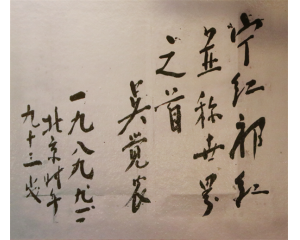 宁红祁红
並称世界
之首
吴觉农
一九八九
北京时年
九十三岁